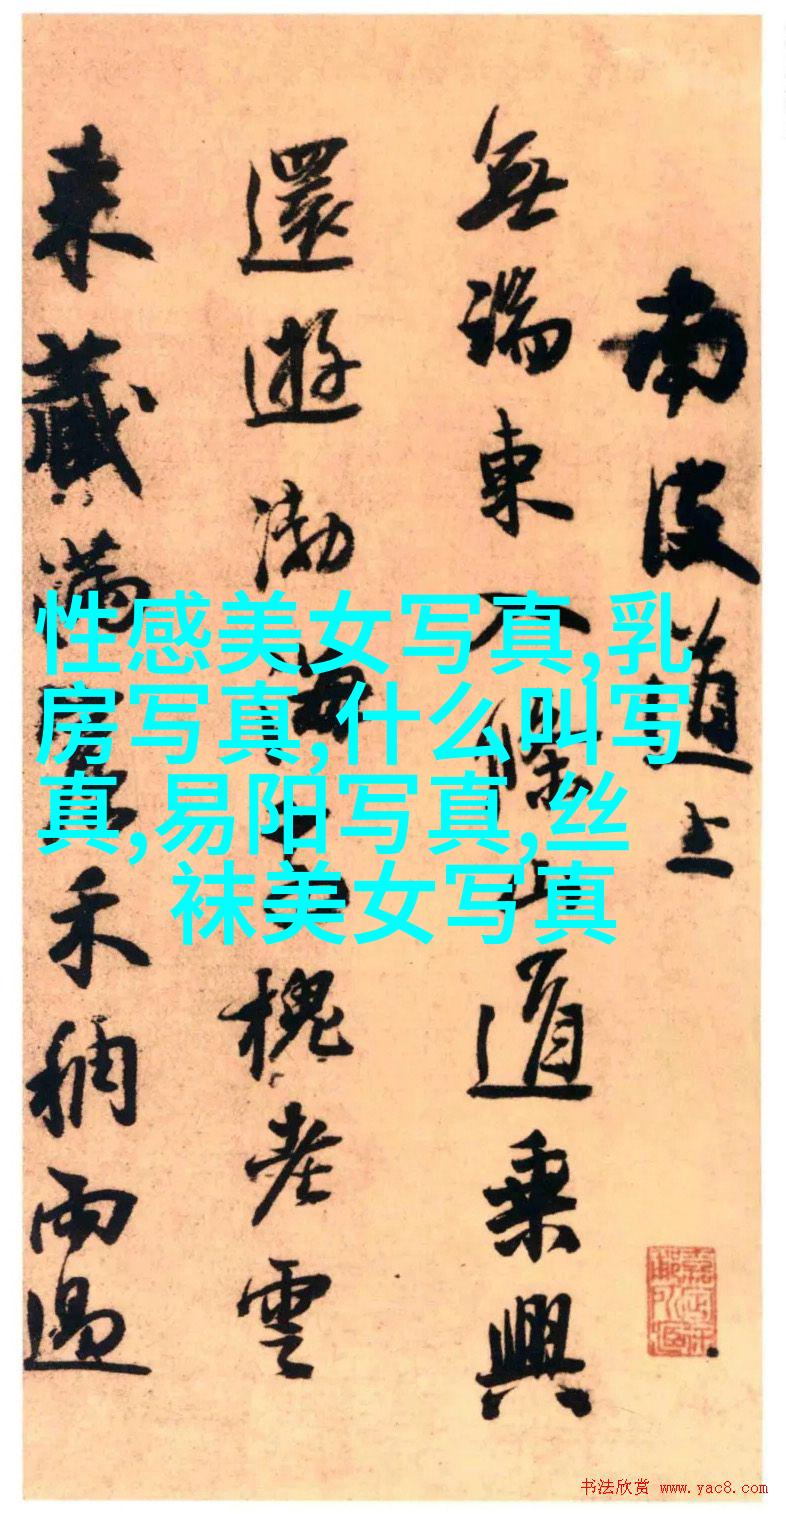 南皮道上
無端東入條山道乘興
還遊渤海
槐老雲
来藏滿
禾稠雨過
性感美女写真,乳
房写真,什么叫写
真,易阳写真,丝
袜美女写真
书法欣赏 www.yac8.com